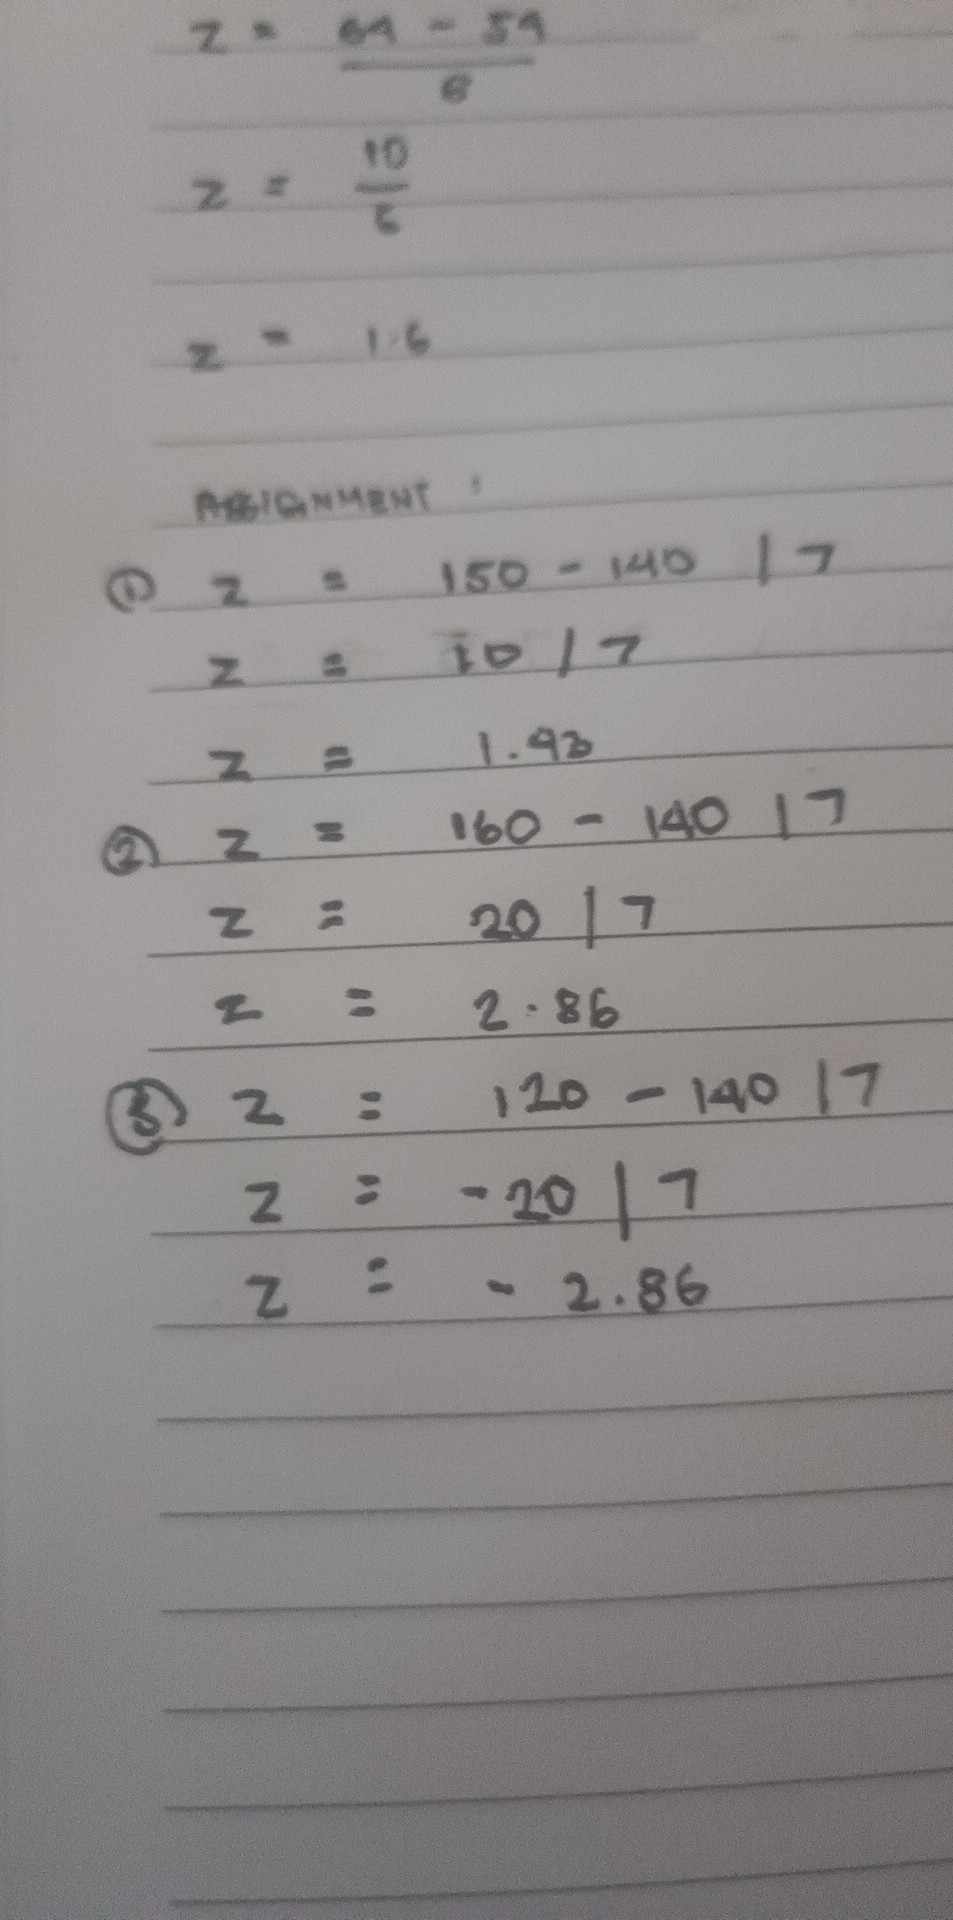 z = 64 - 54
6
z = 10
6
z = 1.6
ASSIGNMENT :
① z = 150 - 140 / 7
z = 10 / 7
z = 1.43
② z = 160 - 140 / 7
z = 20 / 7
z = 2.86
③ z = 120 - 140 / 7
z = -20 / 7
z = - 2.86